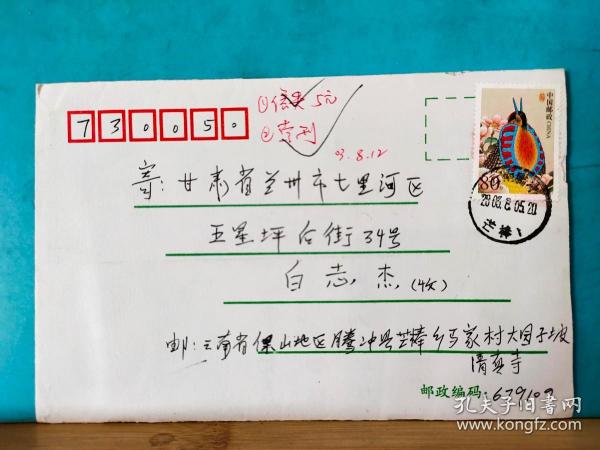 730050
①信夹 5元
②寄刊
03.8.12
中国邮政
CHINA
80
2003.8.05.20
芒棒
寄:甘肃省兰州市七里河区
五星坪后街34号
白志杰(收)
邮:云南省保山地区腾冲县芒棒乡马家村大园子坡
清真寺
邮政编码:679100
孔夫子旧书网
www.kongfz.com